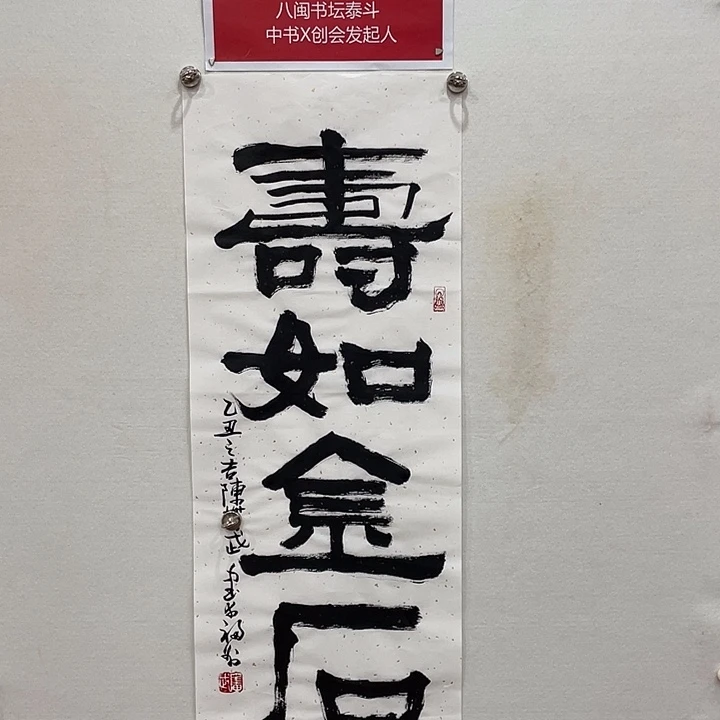 八闽书坛泰斗
中书X创会发起人
壽如金石
乙丑之吉陳